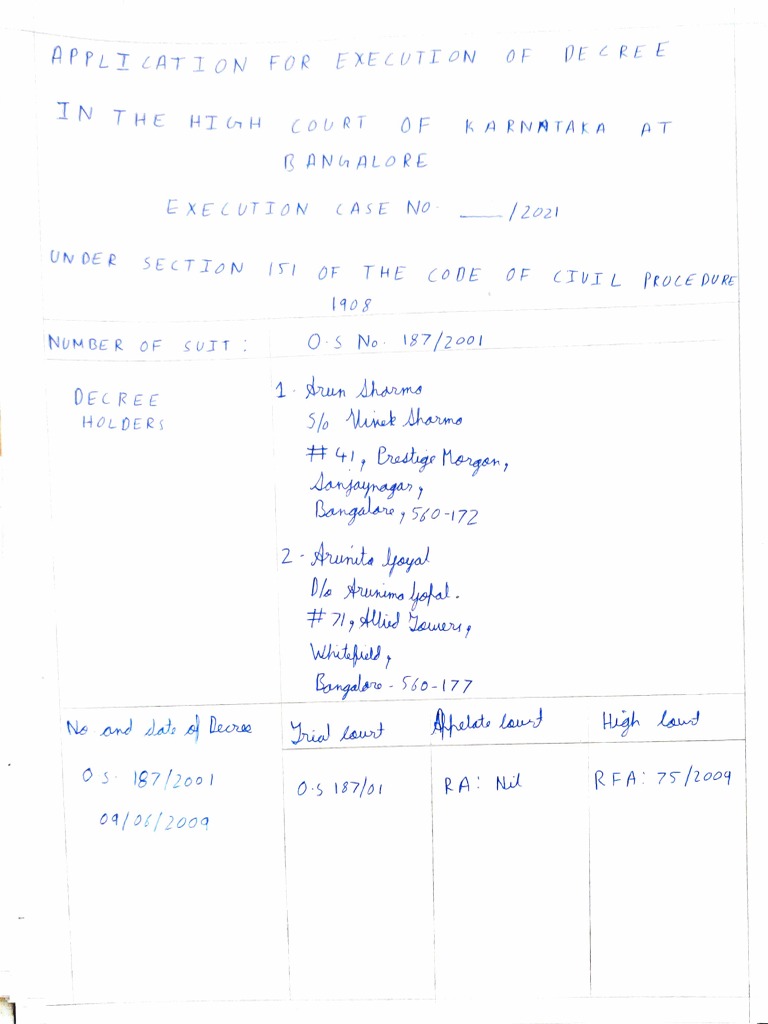 APPLICATION FOR EXECUTION OF DECREE
IN THE HIGH COURT OF KARNATAKA AT
BANGALORE
EXECUTION CASE NO. ___/2021
UNDER SECTION 151 OF THE CODE OF CIVIL PROCEDURE
1908
NUMBER OF SUIT: O.S No. 187/2001
DECREE
HOLDERS
1. Arun Sharma
S/o Vivek Sharma
# 41, Prestige Morgan,
Sanjaynagar,
Bangalore, 560-172
2- Arunita Goyal
D/o Arunima Gopal.
# 71, Allied Towers,
Whitefield,
Bangalore - 560-177
No and date of Decree Trial court Appelate court High court
O S. 187/2001 O.S 187/01 RA: Nil RFA: 75/2009
09/06/2009